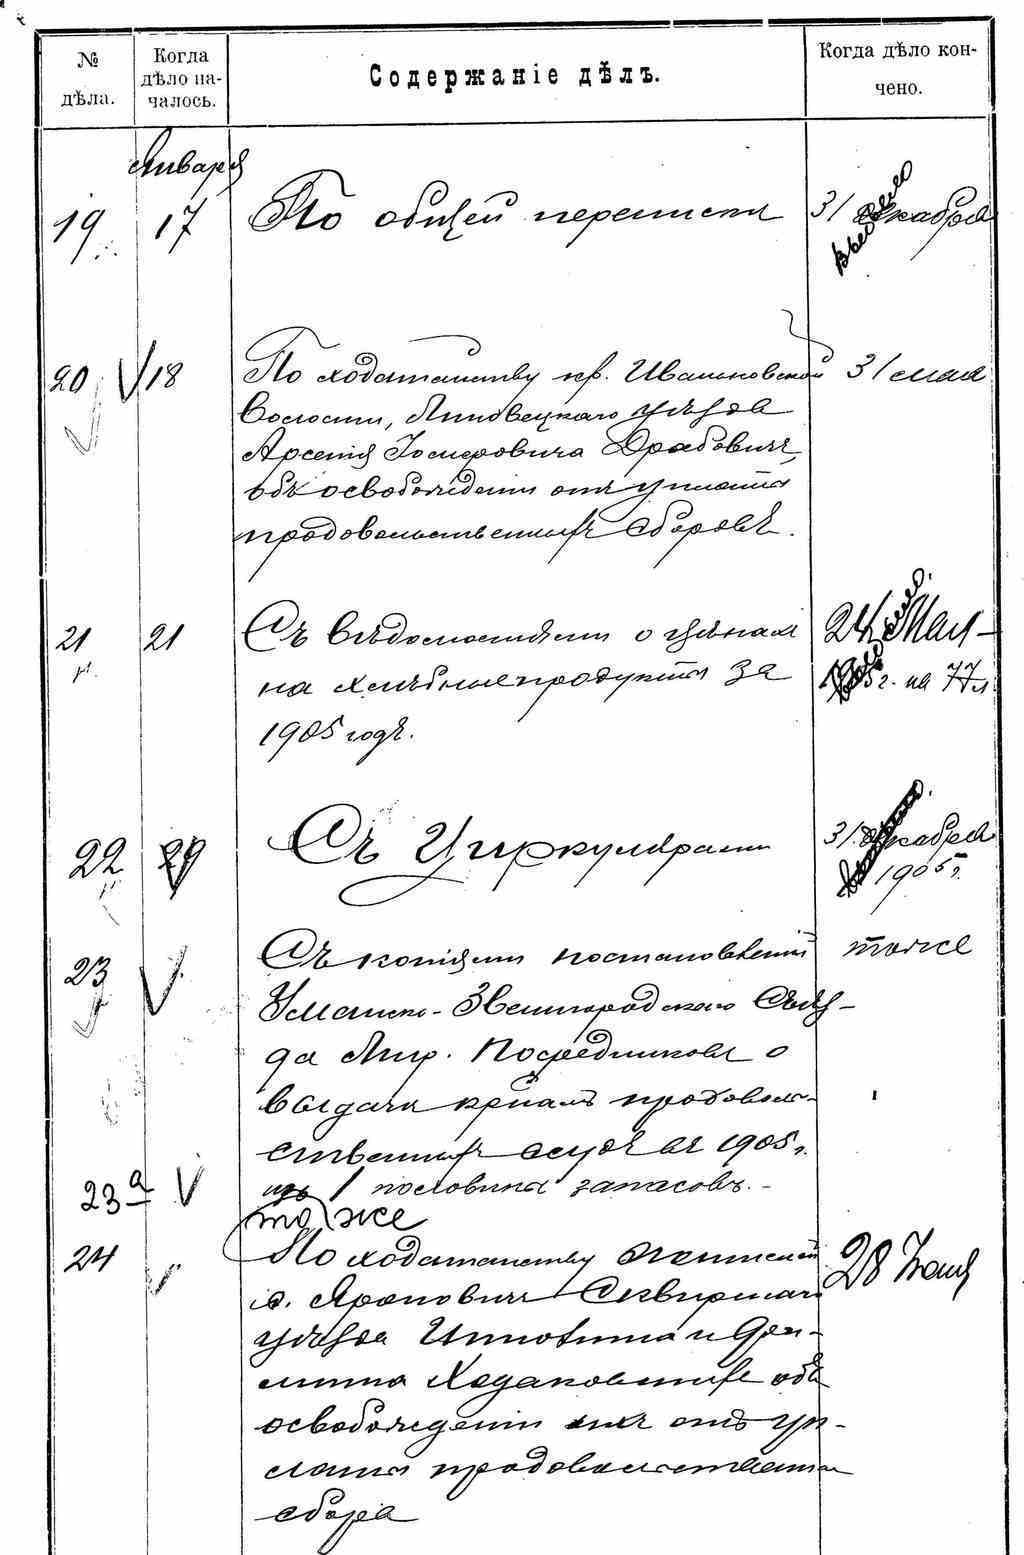 № дѣла.
Когда дѣло началось.
Содержаніе дѣлъ.
Когда дѣло кончено.
Января
19 17 По общей переписки 31 декабря
20 18 По ходатайству кр. Иваньковской 31 мая
волости, Липовецкаго уѣзда
Арсенія Іосифовича Драбовича,
объ освобожденіи отъ уплаты
продовольственныхъ сборовъ.
21 21 Съ вѣдомостями о цѣнахъ 24 Мая
на хлѣбные продукты за 1905 г. на 77 л
1905 годъ.
22 29 Съ Циркулярами 31 декабря
1905 г.
23 Съ копіями постановленій тоже
Уманско-Звенигородскаго Съѣз-
да Мир. Посредниковъ о
выдачи кр‍намъ продоволь-
ственныхъ ссудъ въ 1905 г.
23а изъ 1 половины запасовъ.
то же
24 По ходатайству жителей 28 Іюня
с. Яроповичъ Сквирскаго
уѣзда
Ходаковскихъ объ
освобожденіи ихъ отъ уп-
латы продовольственнаго
сбора